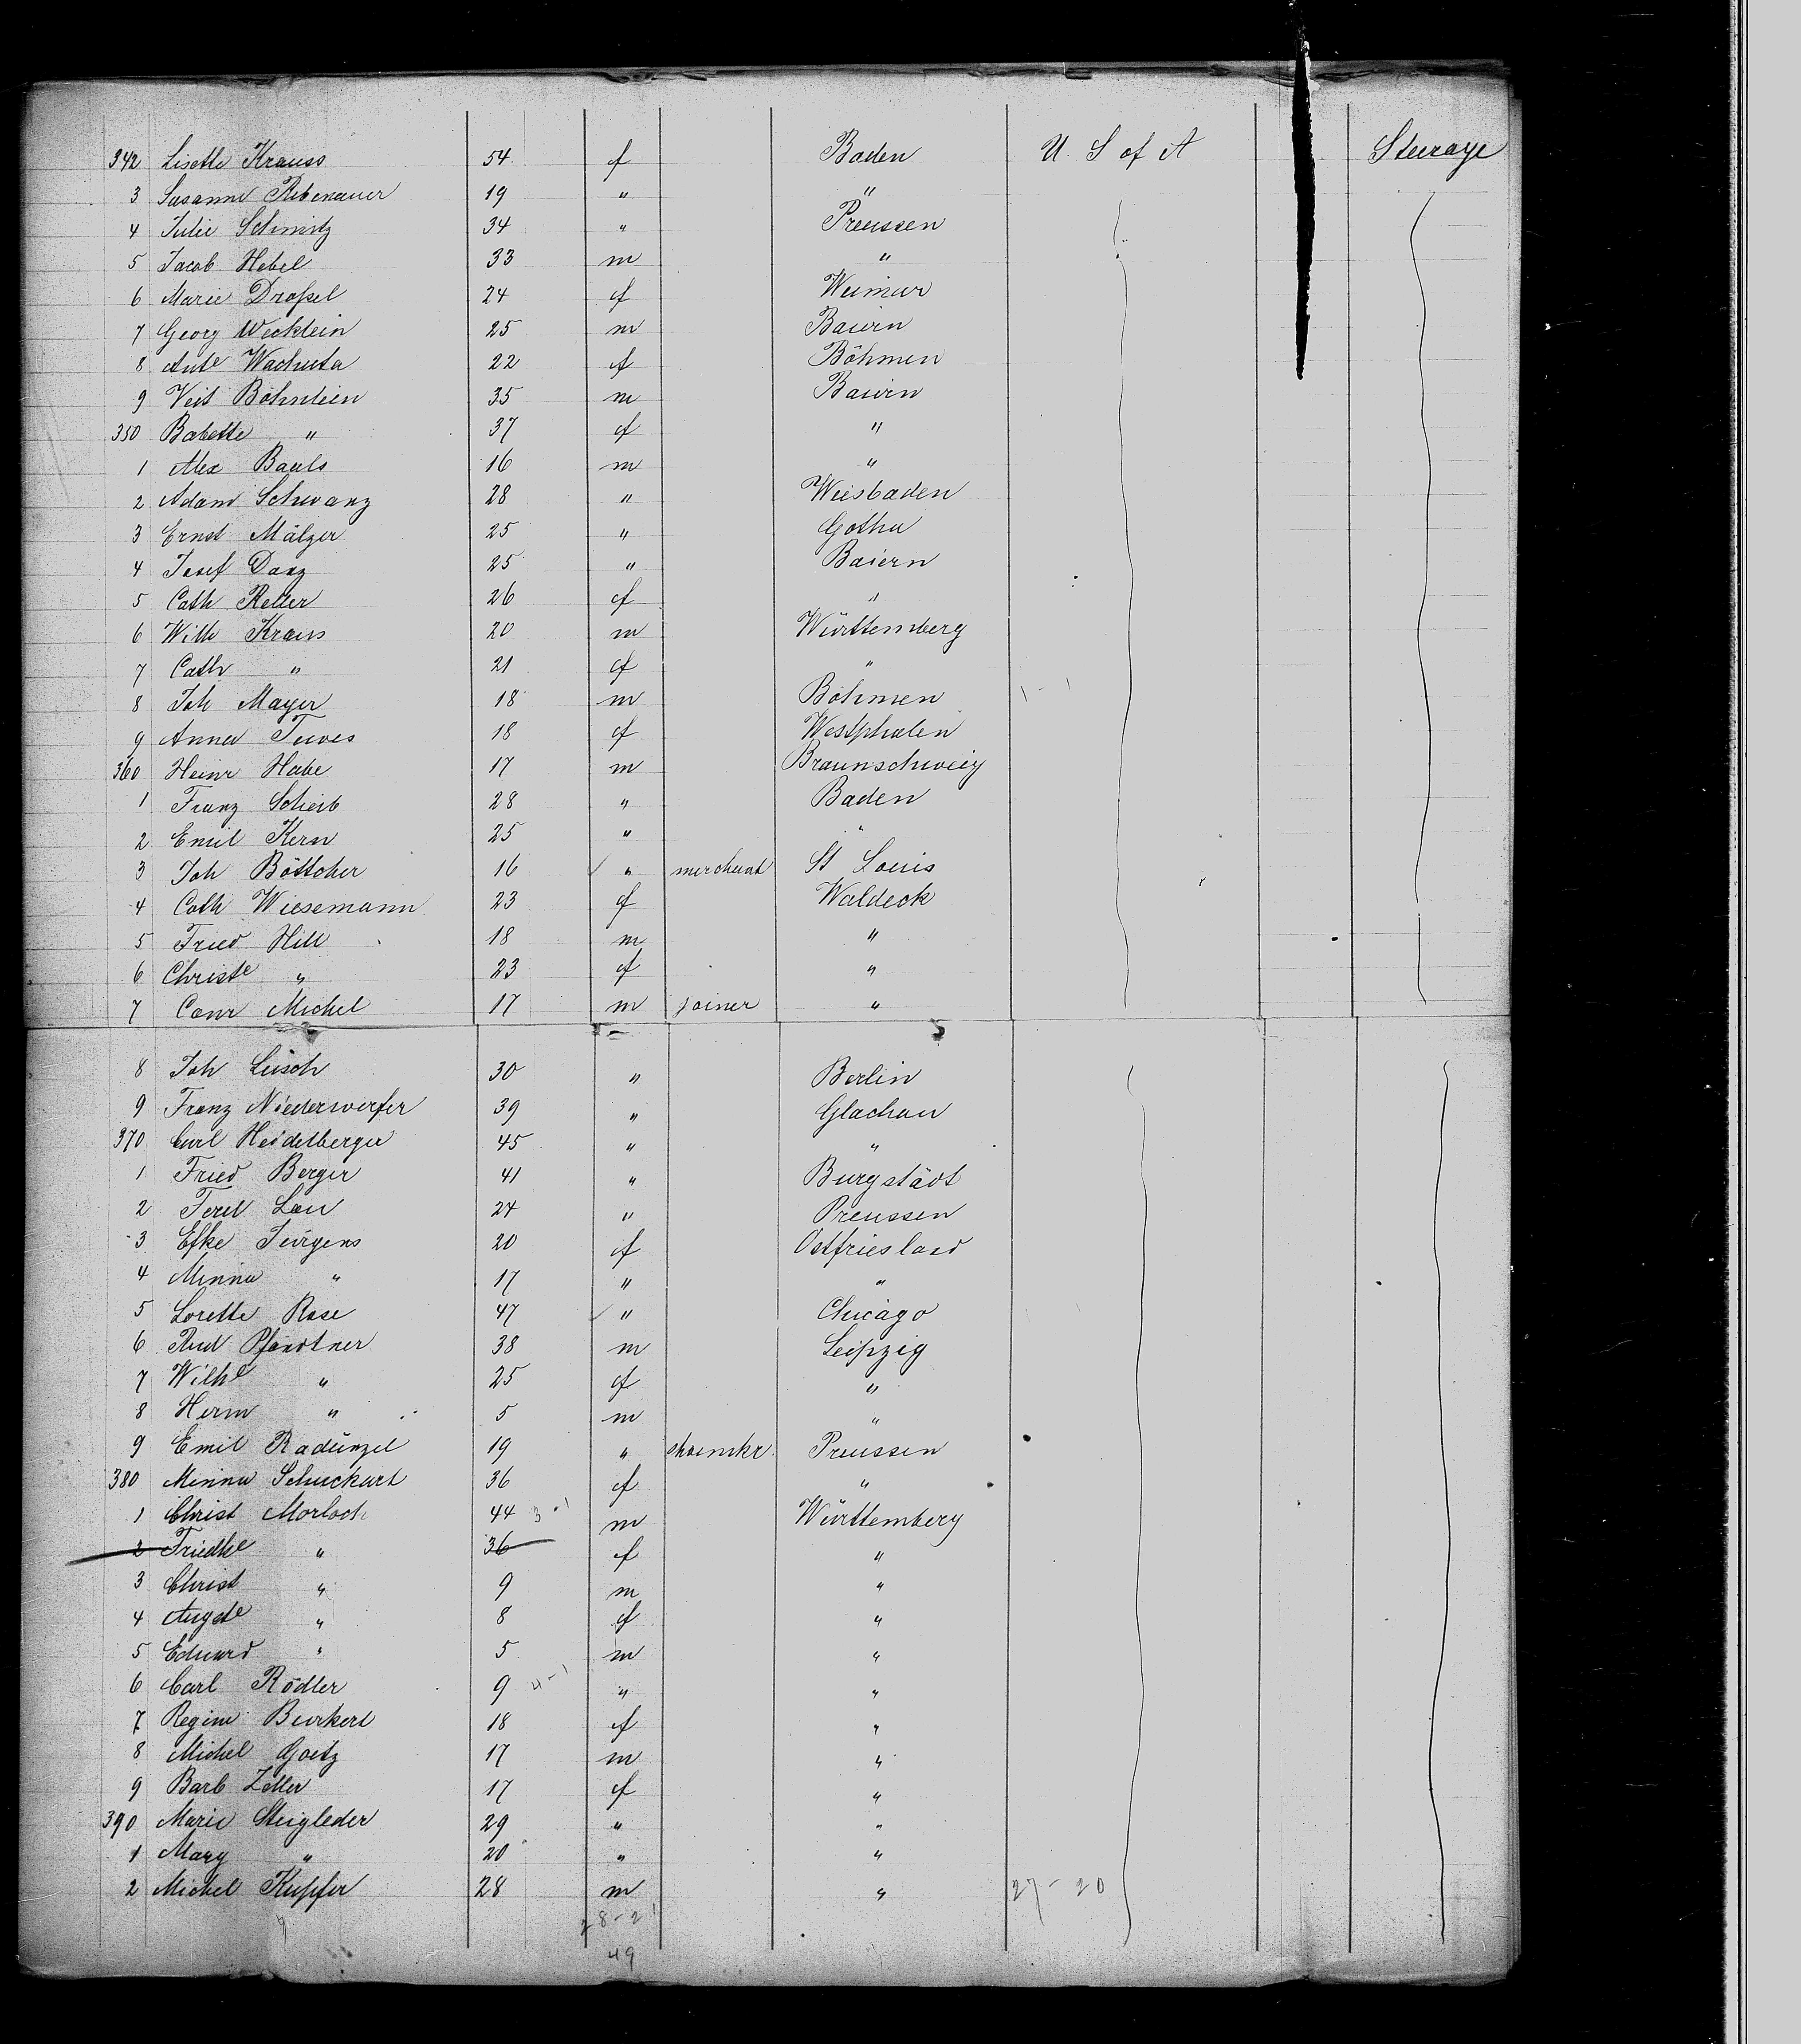 342 Lisette Krauss 54 f Baden U. S of A Steerage
3 Susanne Rebenauer 19 " "
4 Julie Schmitz 34 " Preussen
5 Jacob Hebel 33 m "
6 Marie Droßel 24 f Weimar
7 Georg Wecklein 25 m Baiern
8 Ante Wachuta 22 f Böhmen
9 Veit Böhnlein 35 m Baiern
350 Babette " 37 f "
1 Alex Bauls 16 m "
2 Adam Schwanz 28 " Wiesbaden
3 Ernst Mälzer 25 " Gotha
4 Josef Danz 25 " Baiern
5 Cath Reller 26 f "
6 Wilh Kraus 20 m Württemberg
7 Cath " 21 f "
8 Joh Mayer 18 m Böhmen
9 Anna Tewes 18 f Westphalen
360 Heinr Habe 17 m Braunschweig
1 Franz Scheib 28 " Baden
2 Emil Kern 25 " "
3 Joh Böttcher 16 " merchant St Louis
4 Cath Wiesemann 23 f Waldeck
5 Fried Hill 18 m "
6 Christe " 23 f "
7 Conr Michel 17 m joiner "
8 Joh Leisch 30 " Berlin
9 Franz Niederwerfer 39 " Glachau
370 Carl Heidelberger 45 " "
1 Fried Berger 41 " Burgstädt
2 Ferd Lau 24 " Preussen
3 Efke Jürgens 20 f Ostfriesland
4 Minna " 17 " "
5 Lorette Rose 47 " Chicago
6 Rud Pfändtner 38 m Leipzig
7 Wilhe " 25 f "
8 Herm " 5 m "
9 Emil Radünzel 19 " shoemkr. Preussen
380 Minna Schuckart 36 f "
1 Christ Morloch 44 3-1 m Württemberg
2 Friedke " 36 f "
3 Christ " 9 m "
4 Augste " 8 f "
5 Eduard " 5 m "
6 Carl Rödler 9 4-1 " "
7 Regine Burkert 18 f "
8 Michel Goetz 17 m "
9 Barb Zeller 17 f "
390 Marie Steigleder 29 " "
1 Mary " 20 " "
2 Michel Kupfer 28 m " 27-20
28-21
49